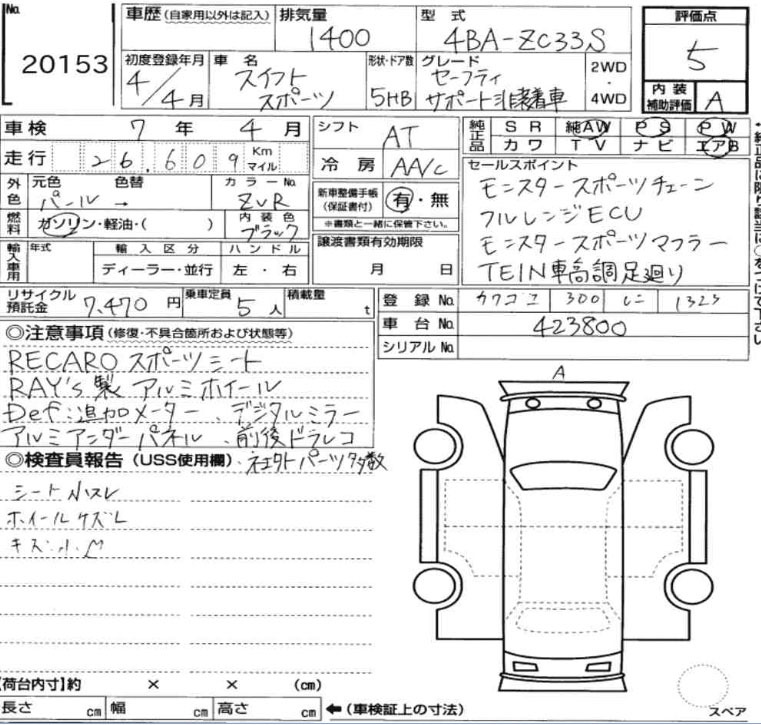 No.
20153
車歴 (自家用以外は記入)
排気量
1400
型式
4BA-ZC33S
評価点
5
初度登録年月
4/4月
車名
スイフト
スポーツ
形状・ドア数
5HB
グレード
セーフティ
サポート非装着車
2WD
・
4WD
内装
補助評価
A
車検 7年 4月
シフト
AT
純正品
SR 純AW PS PW
カワ TV ナビ エアB
走行 26,609 Km マイル
冷房
AA/C
セールスポイント
モンスタースポーツチェーン
フルレンジECU
モンスタースポーツマフラー
TEIN車高調足廻り
外色
元色 色替
パール →
カラーNo.
ZVR
新車整備手帳
(保証書付)
有・無
※書類と一緒に保管下さい。
燃料
ガソリン・軽油・( )
内装色
ブラック
譲渡書類有効期限
月 日
輸入車用
年式
輸入区分
ディーラー・並行
ハンドル
左・右
リサイクル
預託金
7,470円
乗車定員
5人
積載量
t
登録No.
300
1323
車台No.
423800
シリアルNo.
◎注意事項 (修復・不具合箇所および状態等)
RECARO スポーツシート
RAY's製 アルミホイール
Defi追加メーター、デジタルミラー
アルミアンダーパネル、前後ドラレコ
◎検査員報告 (USS使用欄)
、社外パーツ多数
シート小スレ
ホイールケズレ
キズ小
A
【荷台内寸】約 × × (cm)
長さ cm 幅 cm 高さ cm ←(車検証上の寸法)
スペア